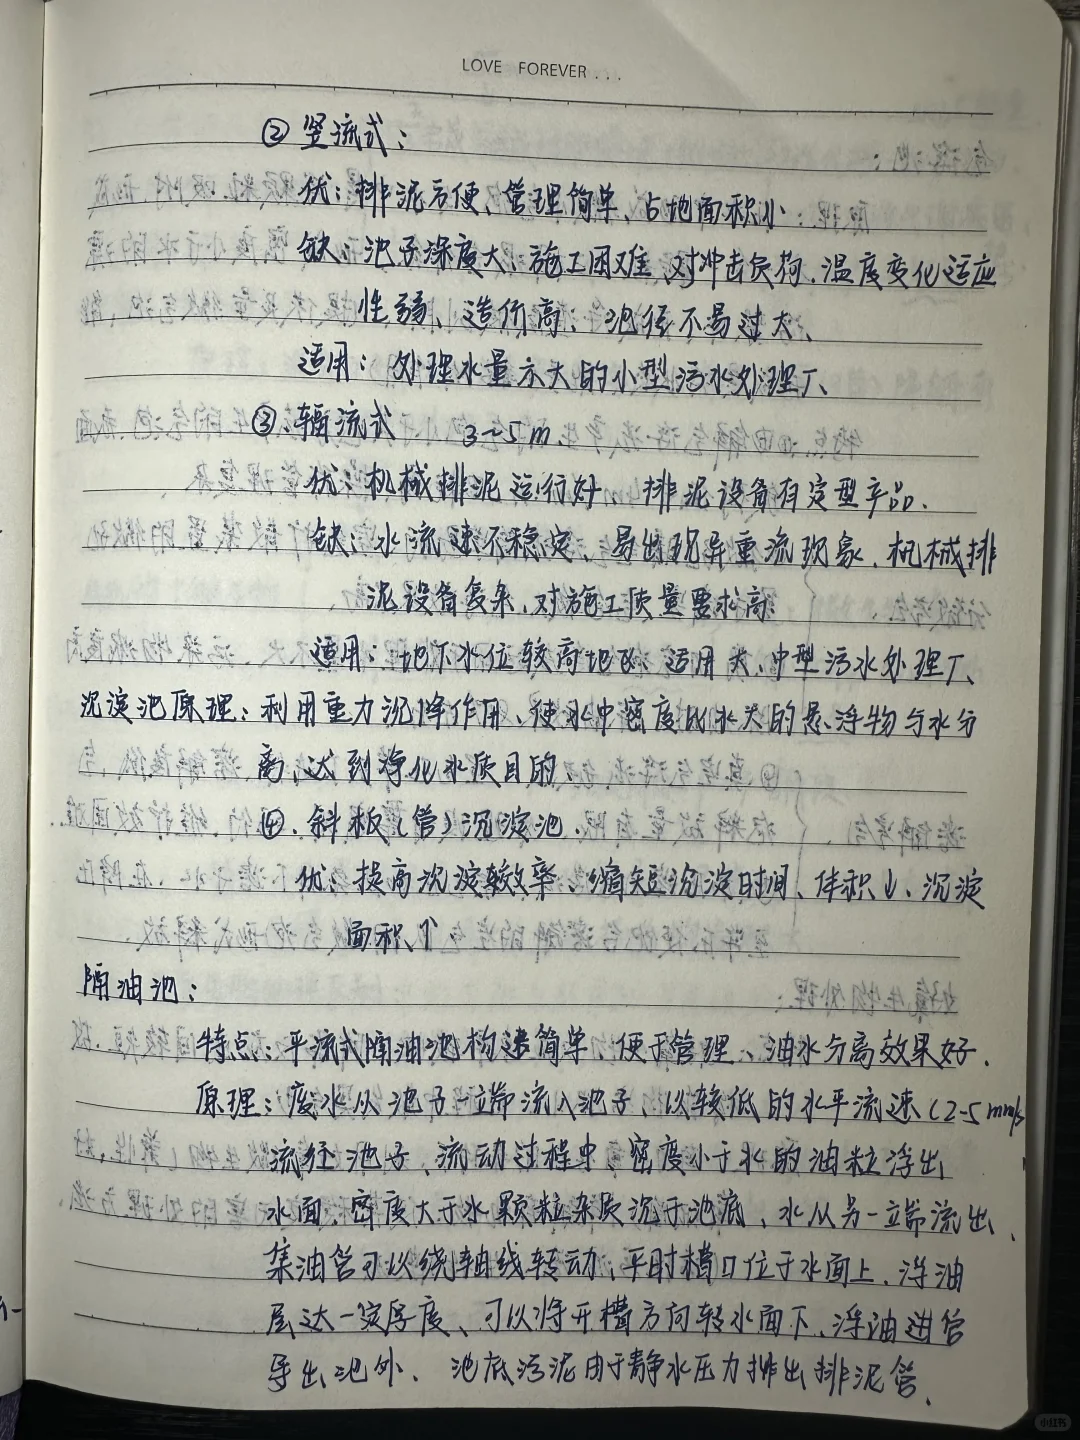 LOVE FOREVER...
② 竖流式：
优：排泥方便、管理简单、占地面积小
缺：池子深度大、施工困难、对冲击负荷、温度变化适应
性弱、造价高、池径不易过大、
适用：处理水量不大的小型污水处理厂、
③ 辐流式 3~5m.
优：机械排泥运行好、排泥设备有定型产品.
缺：水流速不稳定、易出现异重流现象、机械排
泥设备复杂、对施工质量要求高
适用：地下水位较高地区、适用大、中型污水处理厂、
沉淀池原理：利用重力沉降作用、使水中密度比水大的悬浮物与水分
离，达到净化水质目的
④. 斜板（管）沉淀池.
优：提高沉淀效率、缩短沉淀时间、体积↓、沉淀
面积↑
隔油池：
特点：平流式隔油池构造简单、便于管理、油水分离效果好.
原理：废水从池子一端流入池子、以较低的水平流速（2-5mm/s
流经池子、流动过程中、密度小于水的油粒浮出
水面、密度大于水颗粒杂质沉于池底、水从另一端流出、
集油管可以绕轴线转动，平时槽口位于水面上、浮油
层达一定厚度、可以将开槽方向转水面下、浮油进管
导出池外、池底污泥由于静水压力排出排泥管.
小红书